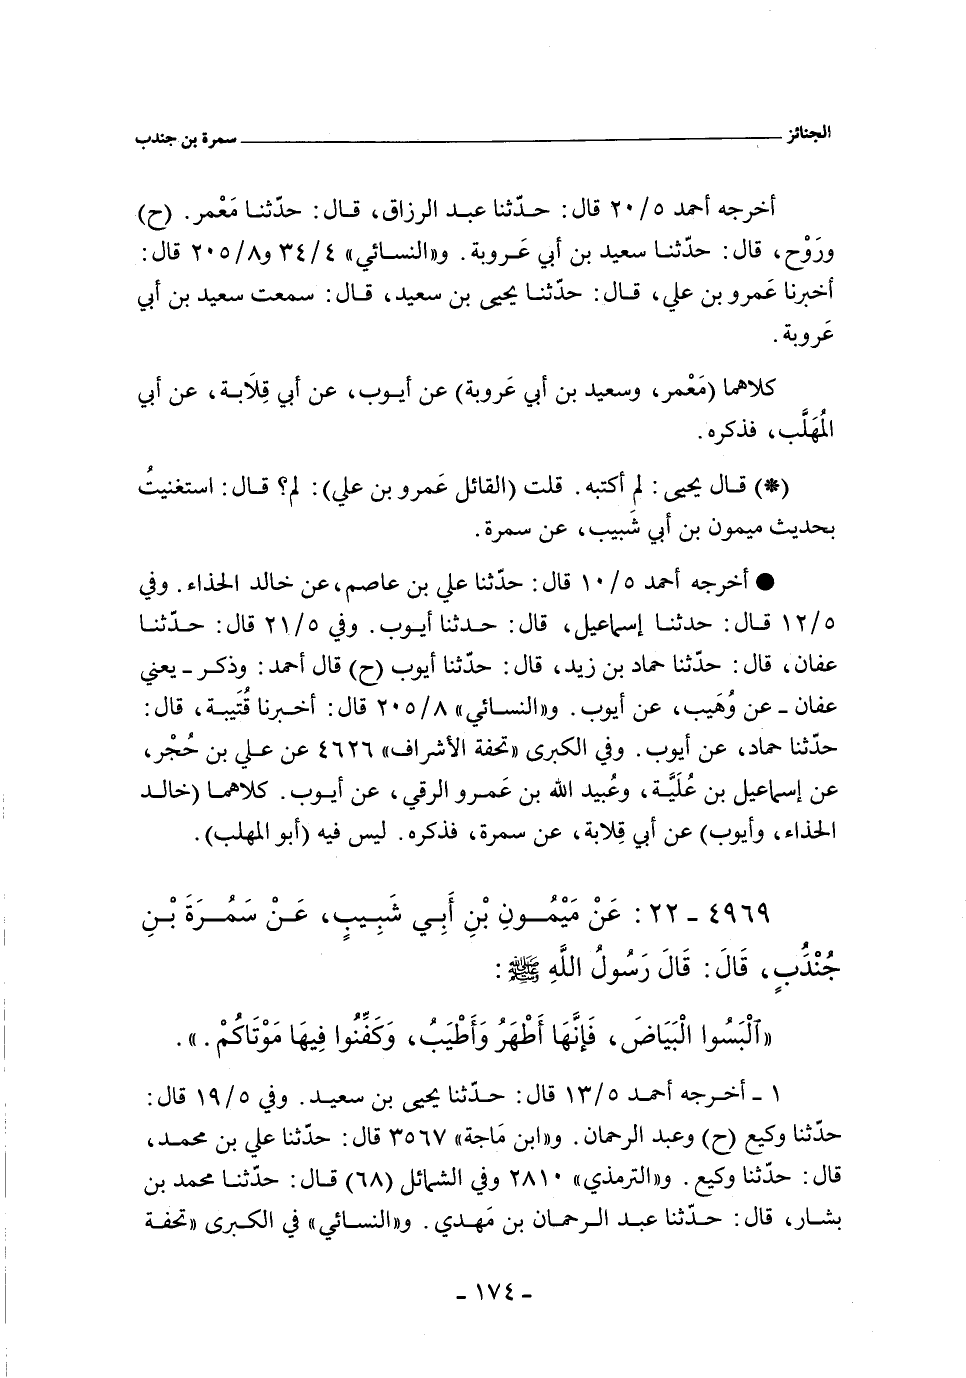 الجنائز ـــــــــــــــــــــــــــــــــــــــــــــــــ سمرة بن جندب
أخرجه أحمد ٢٠/٥ قال: حدّثنا عبد الرزاق، قال: حدّثنا مَعْمر. (ح)
ورَوْح، قال: حدّثنا سعيد بن أبي عَروبة. و«النسائي» ٣٤/٤ و٢٠٥/٨ قال:
أخبرنا عَمرو بن علي، قال: حدّثنا يحيى بن سعيد، قال: سمعت سعيد بن أبي
عَروبة.
كلاهما (مَعْمر، وسعيد بن أبي عَروبة) عن أيوب، عن أبي قِلَابة، عن أبي
المُهَلَّب، فذكره.
(*) قال يحيى: لم أكتبه. قلت (القائل عَمرو بن علي): لم؟ قال: استغنيتُ
بحديث ميمون بن أبي شَبيب، عن سمرة.
● أخرجه أحمد ١٠/٥ قال: حدّثنا علي بن عاصم، عن خالد الحذاء. وفي
١٢/٥ قال: حدثنا إسماعيل، قال: حدثنا أيوب. وفي ٢١/٥ قال: حدّثنا
عفان، قال: حدّثنا حماد بن زيد، قال: حدّثنا أيوب (ح) قال أحمد: وذكر ـ يعني
عفان ـ عن وُهَيب، عن أيوب. و«النسائي» ٢٠٥/٨ قال: أخبرنا قُتَيبة، قال:
حدّثنا حماد، عن أيوب. وفي الكبرى «تحفة الأشراف» ٤٦٢٦ عن علي بن حُجْر،
عن إسماعيل بن عُلَيَّة، وعُبيد الله بن عَمرو الرقي، عن أيوب. كلاهما (خالد
الحذاء، وأيوب) عن أبي قِلابة، عن سمرة، فذكره. ليس فيه (أبو المهلب).
٤٩٦٩ ـ ٢٢: عَنْ مَيْمُونِ بْنِ أَبِي شَبِيبٍ، عَنْ سَمُرَةَ بْنِ
جُنْدُبٍ، قَالَ: قَالَ رَسُولُ اللَّهِ ﷺ:
«ٱلْبَسُوا الْبَيَاضَ، فَإِنَّهَا أَطْهَرُ وَأَطْيَبُ، وَكَفِّنُوا فِيهَا مَوْتَاكُمْ.».
١ ـ أخرجه أحمد ١٣/٥ قال: حدّثنا يحيى بن سعيد. وفي ١٩/٥ قال:
حدّثنا وكيع (ح) وعبد الرحمان. و«ابن مَاجة» ٣٥٦٧ قال: حدّثنا علي بن محمد،
قال: حدّثنا وكيع. و«الترمذي» ٢٨١٠ وفي الشمائل (٦٨) قال: حدّثنا محمد بن
بشار، قال: حدّثنا عبد الرحمان بن مَهدي. و«النسائي» في الكبرى «تحفة
- ١٧٤ -